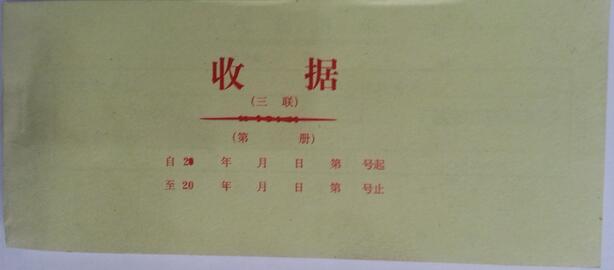 收 据
(三 联)
(第 册)
自 20 年 月 日 第 号起
至 20 年 月 日 第 号止